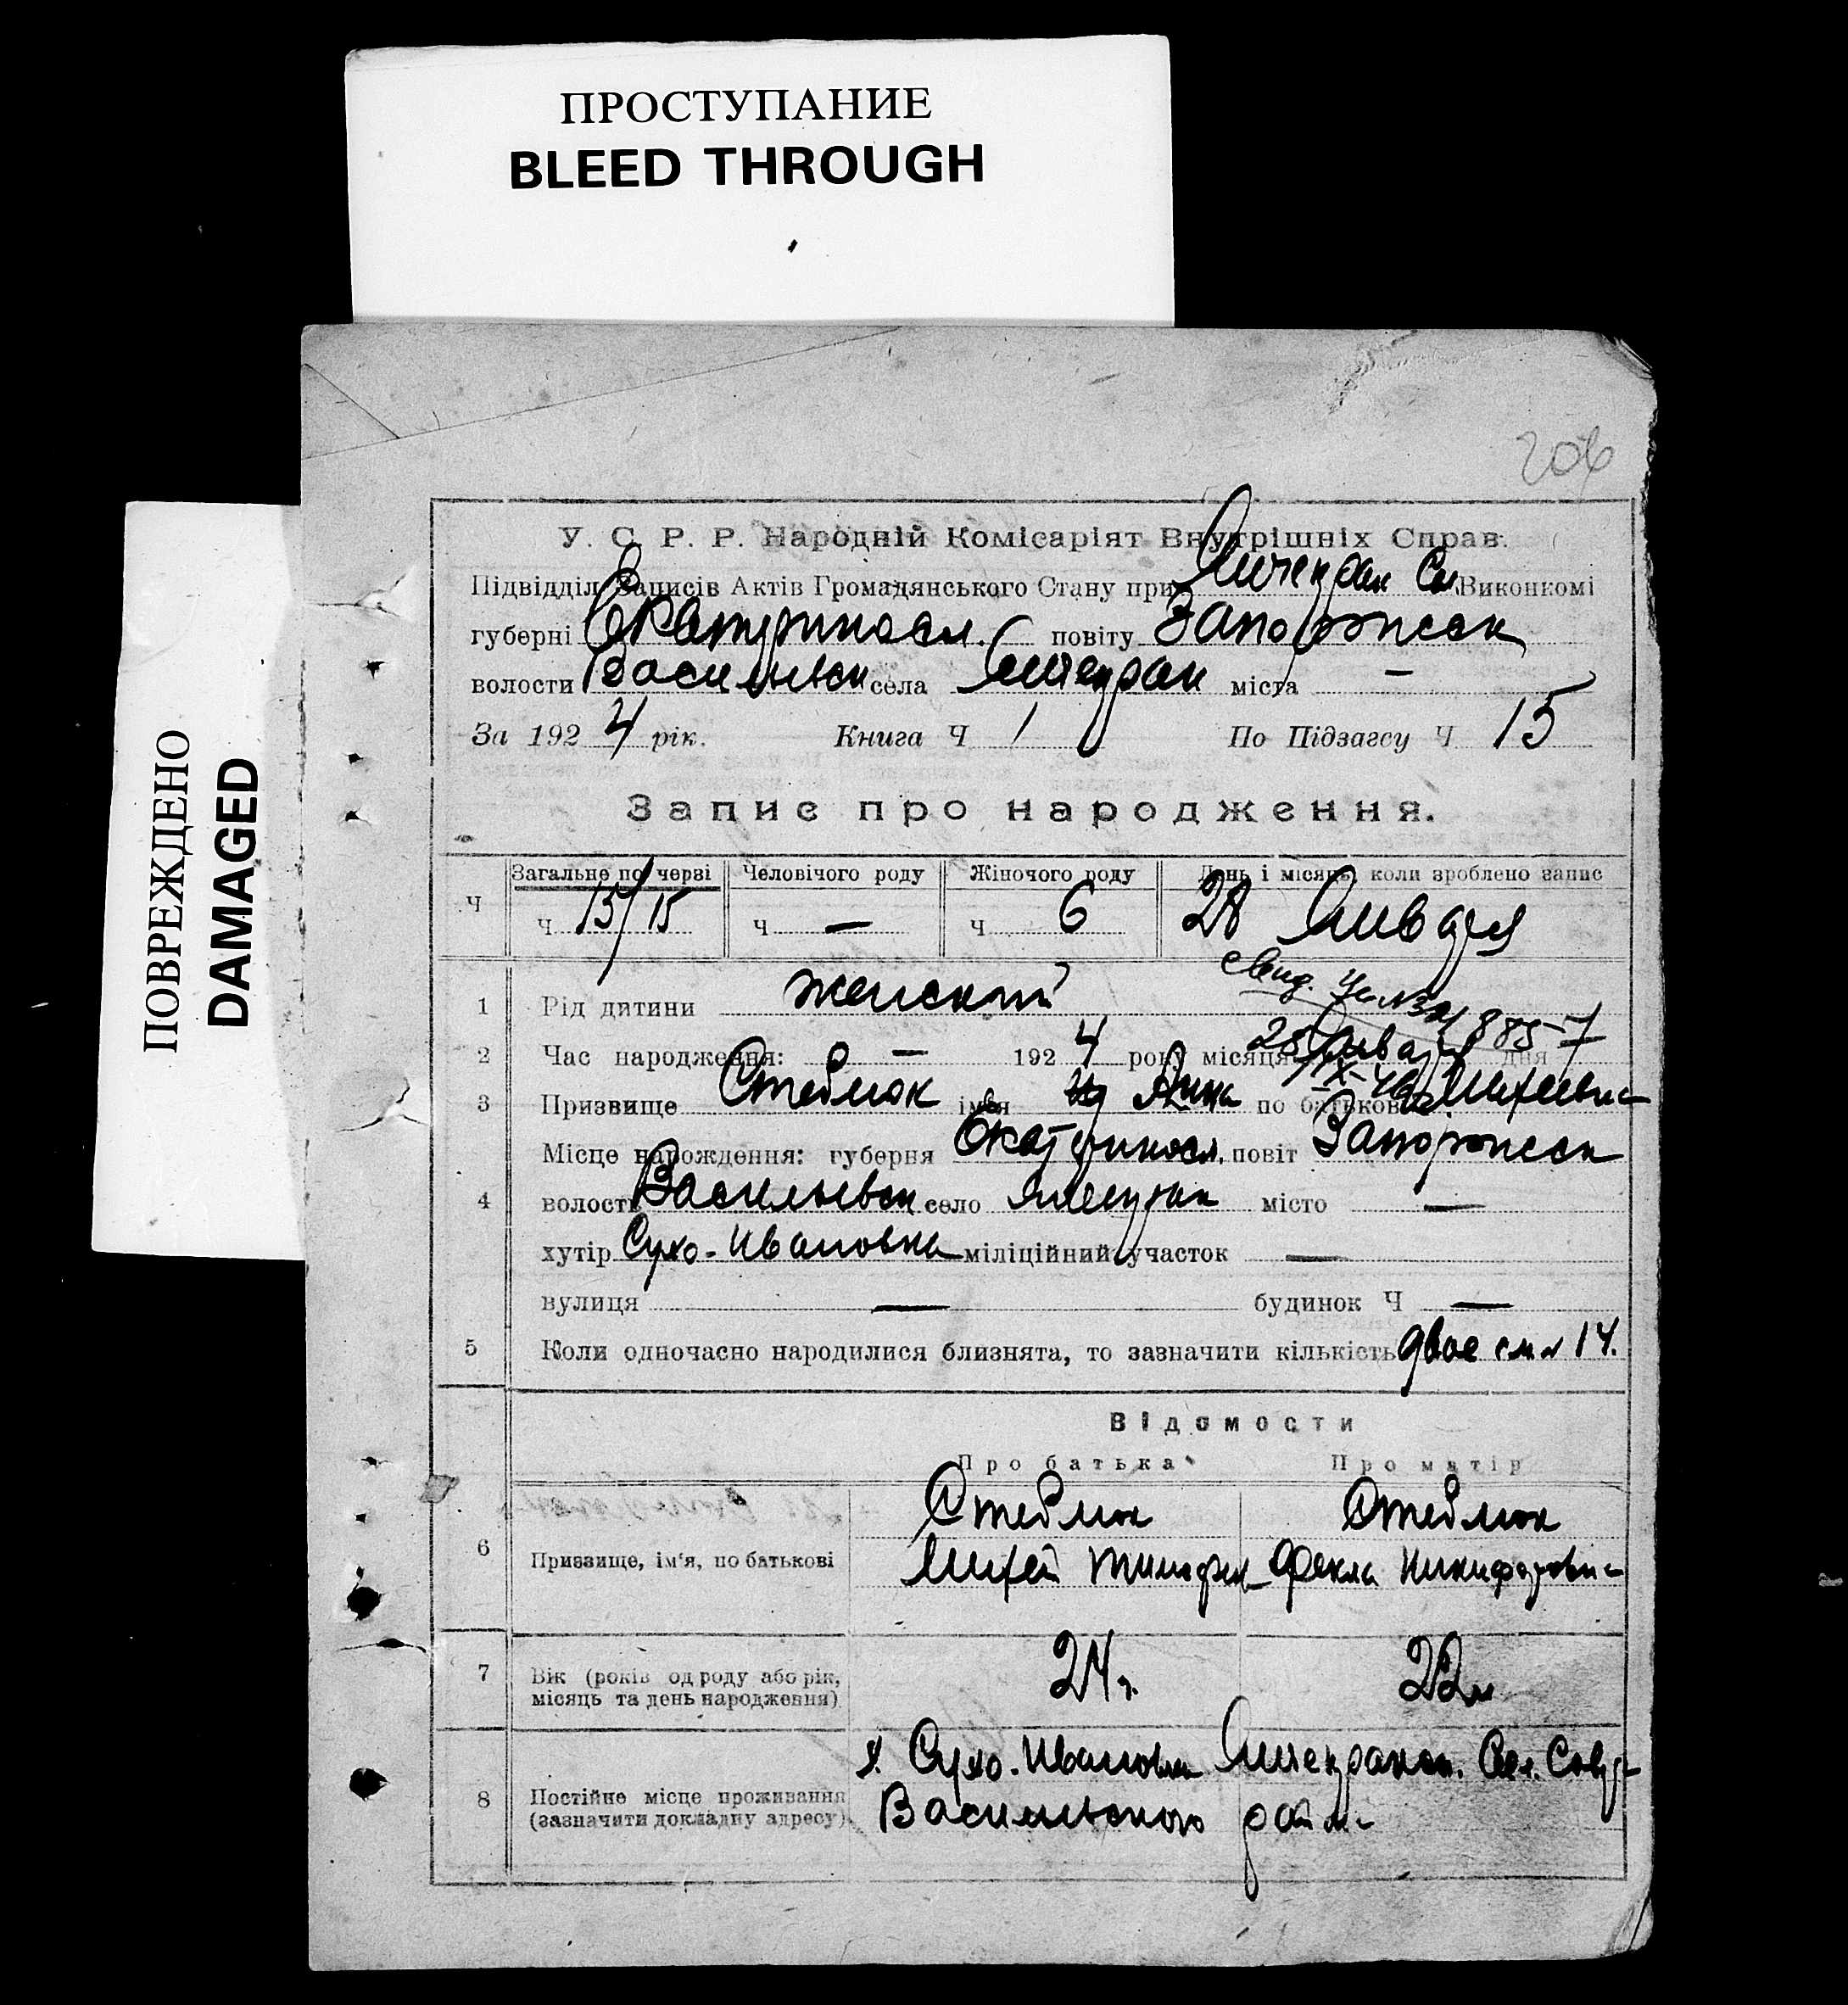 ПРОСТУПАНИЕ
BLEED THROUGH
ПОВРЕЖДЕНО
DAMAGED
206
У. С. Р. Р. Народній Комісаріят Внутрішніх Справ.
Підвідділ Записів Актів Громадянського Стану при Янчекрак Сел Виконкомі
губерні Екатериносл. повіту Запорожск
волости Васильевск села Янчекрак міста —
За 1924 рік. Книга Ч 1 По Підзагсу Ч 15
Запис про народження.
Ч Загальне по черзі Человічого роду Жіночого роду День і місяць, коли зроблено запис
Ч 15/15 Ч — Ч 6 28 Января
свид. 885
1 Рід дитини женский
2 Час народження: — 1924 року місяця 25 Января дня
3 Призвище Стеблюк імя Анна по батькові Михеевна
Місце нарождення: губерня Екатериносл. повіт Запорожск
4 волость Васильевск село Янчекрак місто —
хутір Сухо-Ивановка міліційний участок —
вулиця — будинок Ч —
5 Коли одночасно народилися близнята, то зазначити кількість двое см № 14.
Відомости
Про батька Про матір
Стеблюк Стеблюк
6 Призвище, ім'я, по батькові Михей Тимофеев Фекла Никифоровна
7 Вік (років од роду або рік, місяць та день народження) 24 г. 22 г
х. Сухо-Ивановка Янчекракск. Сел. Совет
8 Постійне місце проживання (зазначити докладну адресу) Васильевского района